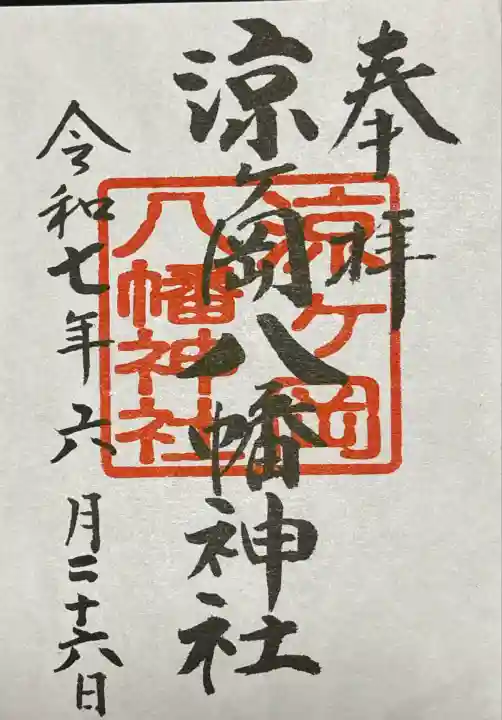 奉拝
涼ヶ岡八幡神社
涼ヶ岡
八幡神社
令和七年六月二十六日